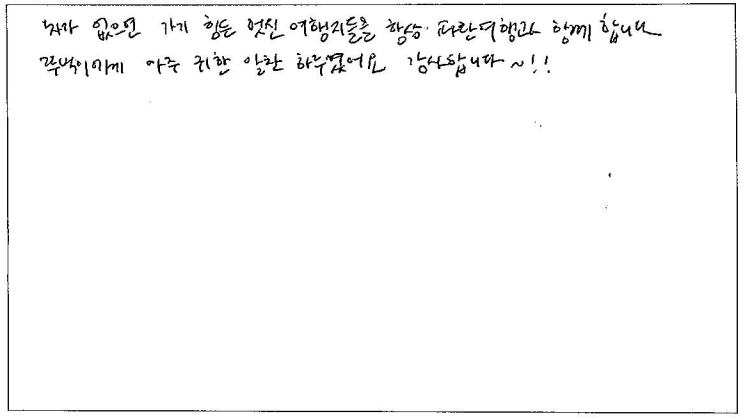 차가 없으면 가기 힘든 멋진 여행지들을 항상 파란여행과 함께 합니다
뚜벅이에게 아주 귀한 알찬 하루였어요 감사합니다~!!